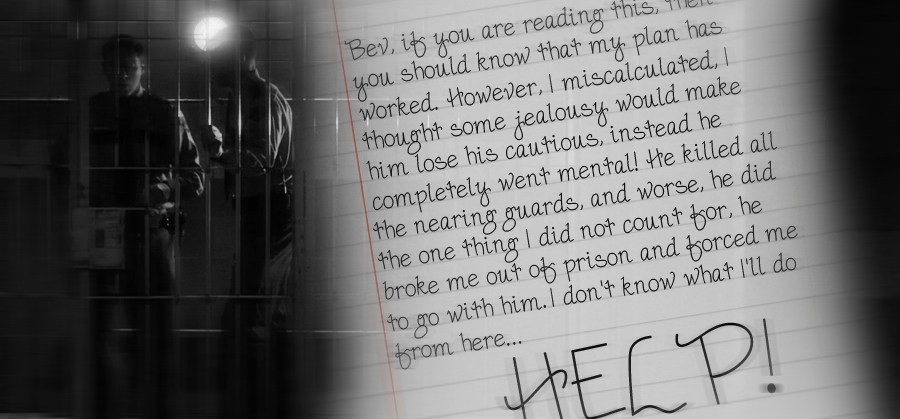 Bev, if you are reading this, then
you should know that my plan has
worked. However, I miscalculated, I
thought some jealousy would make
him lose his cautious, instead he
completely went mental! He killed all
the nearing guards, and worse, he did
the one thing I did not count for, he
broke me out of prison and forced me
to go with him. I don't know what I'll do
from here...
HELP!